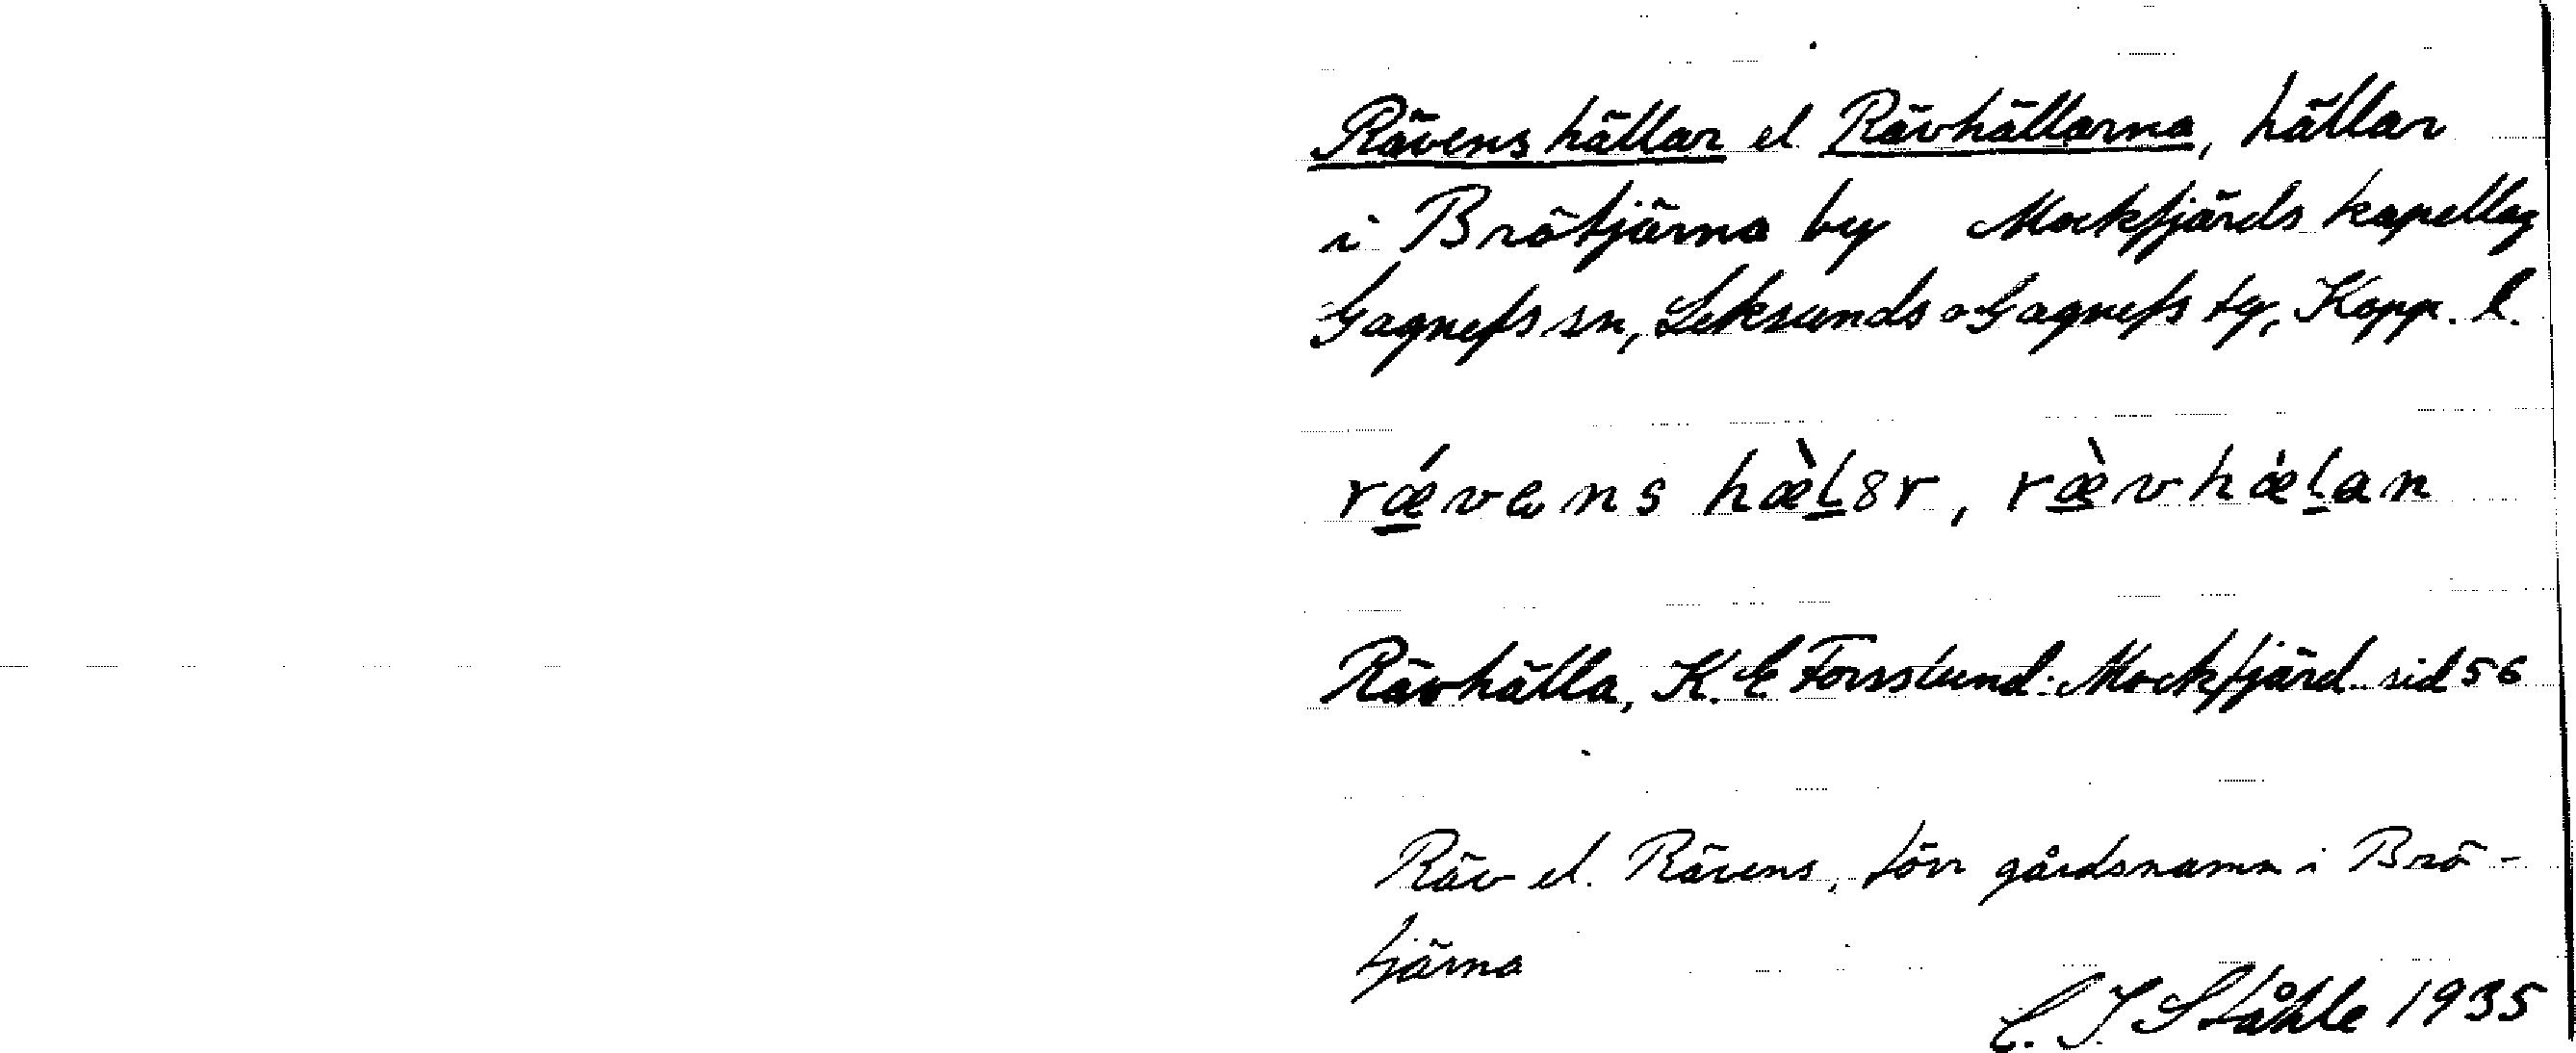 Rävens hällar el Rävhällarna, hällar
i Brötjärna by Mockfjärds kapellag
Gagnefs sn, Leksands o Gagnefs tg, Kopp. l.
rǽvens hæ̀lar, ræ̀vhælan
Rävhälla, K. E Forsslund: Mockfjärd sid 56
Räv el. Rävens, förr gårdsnamn i Brö-
tjärna
C. I. Ståhle 1935